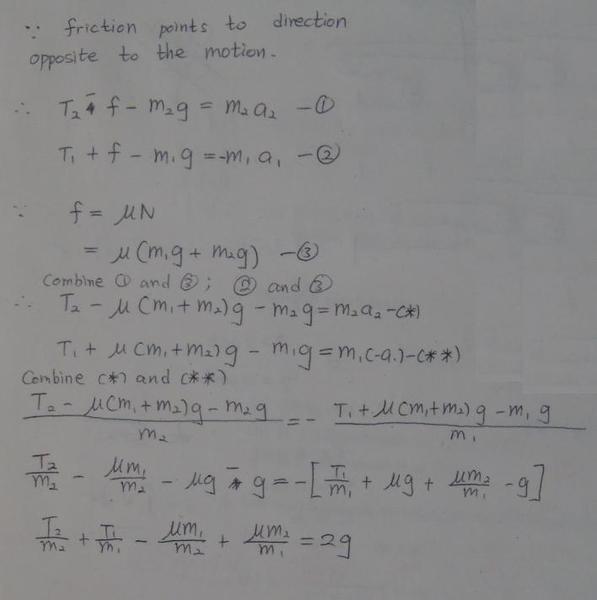 ∵ friction points to direction
opposite to the motion.
∴ T₂ - f - m₂g = m₂a₂ -①
T₁ + f - m₁g = -m₁a₁ -②
∵ f = μN
= μ(m₁g + m₂g) -③
Combine ① and ③; ② and ③
∴ T₂ - μ(m₁+m₂)g - m₂g = m₂a₂ -(*)
T₁ + μ(m₁+m₂)g - m₁g = m₁(-a₁) -(**)
Combine (*) and (**)
(T₂ - μ(m₁+m₂)g - m₂g)/m₂ = - (T₁ + μ(m₁+m₂)g - m₁g)/m₁
T₂/m₂ - μm₁/m₂ - μg - g = -[T₁/m₁ + μg + μm₂/m₁ - g]
T₂/m₂ + T₁/m₁ - μm₁/m₂ + μm₂/m₁ = 2g